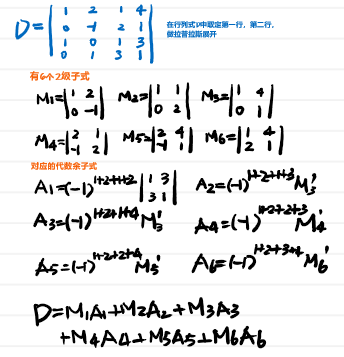 D= | 1 2 1 4 |
| 0 -1 2 1 |
| 1 0 1 3 |
| 0 1 3 1 |
在行列式D中取定第一行，第二行，
做拉普拉斯展开
有6个2级子式
M₁=|1 2; 0 -1| M₂=|1 1; 0 2| M₃=|1 4; 0 1|
M₄=|2 1; -1 2| M₅=|2 4; -1 1| M₆=|1 4; 2 1|
对应的代数余子式
A₁=(-1)^{1+2+1+2} |1 3; 3 1| A₂=(-1)^{1+2+1+3}M₂'
A₃=(-1)^{1+2+1+4}M₃' A₄=(-1)^{1+2+2+3}M₄'
A₅=(-1)^{1+2+2+4}M₅' A₆=(-1)^{1+2+3+4}M₆'
D=M₁A₁+M₂A₂+M₃A₃
+M₄A₄+M₅A₅+M₆A₆